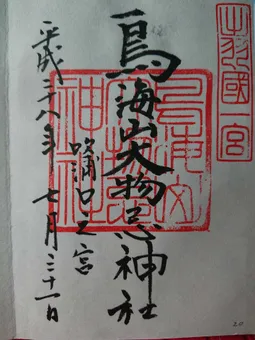 出羽國一宮
鳥海山大物忌神社
吹浦口之宮
平成二十八年七月三十一日
20